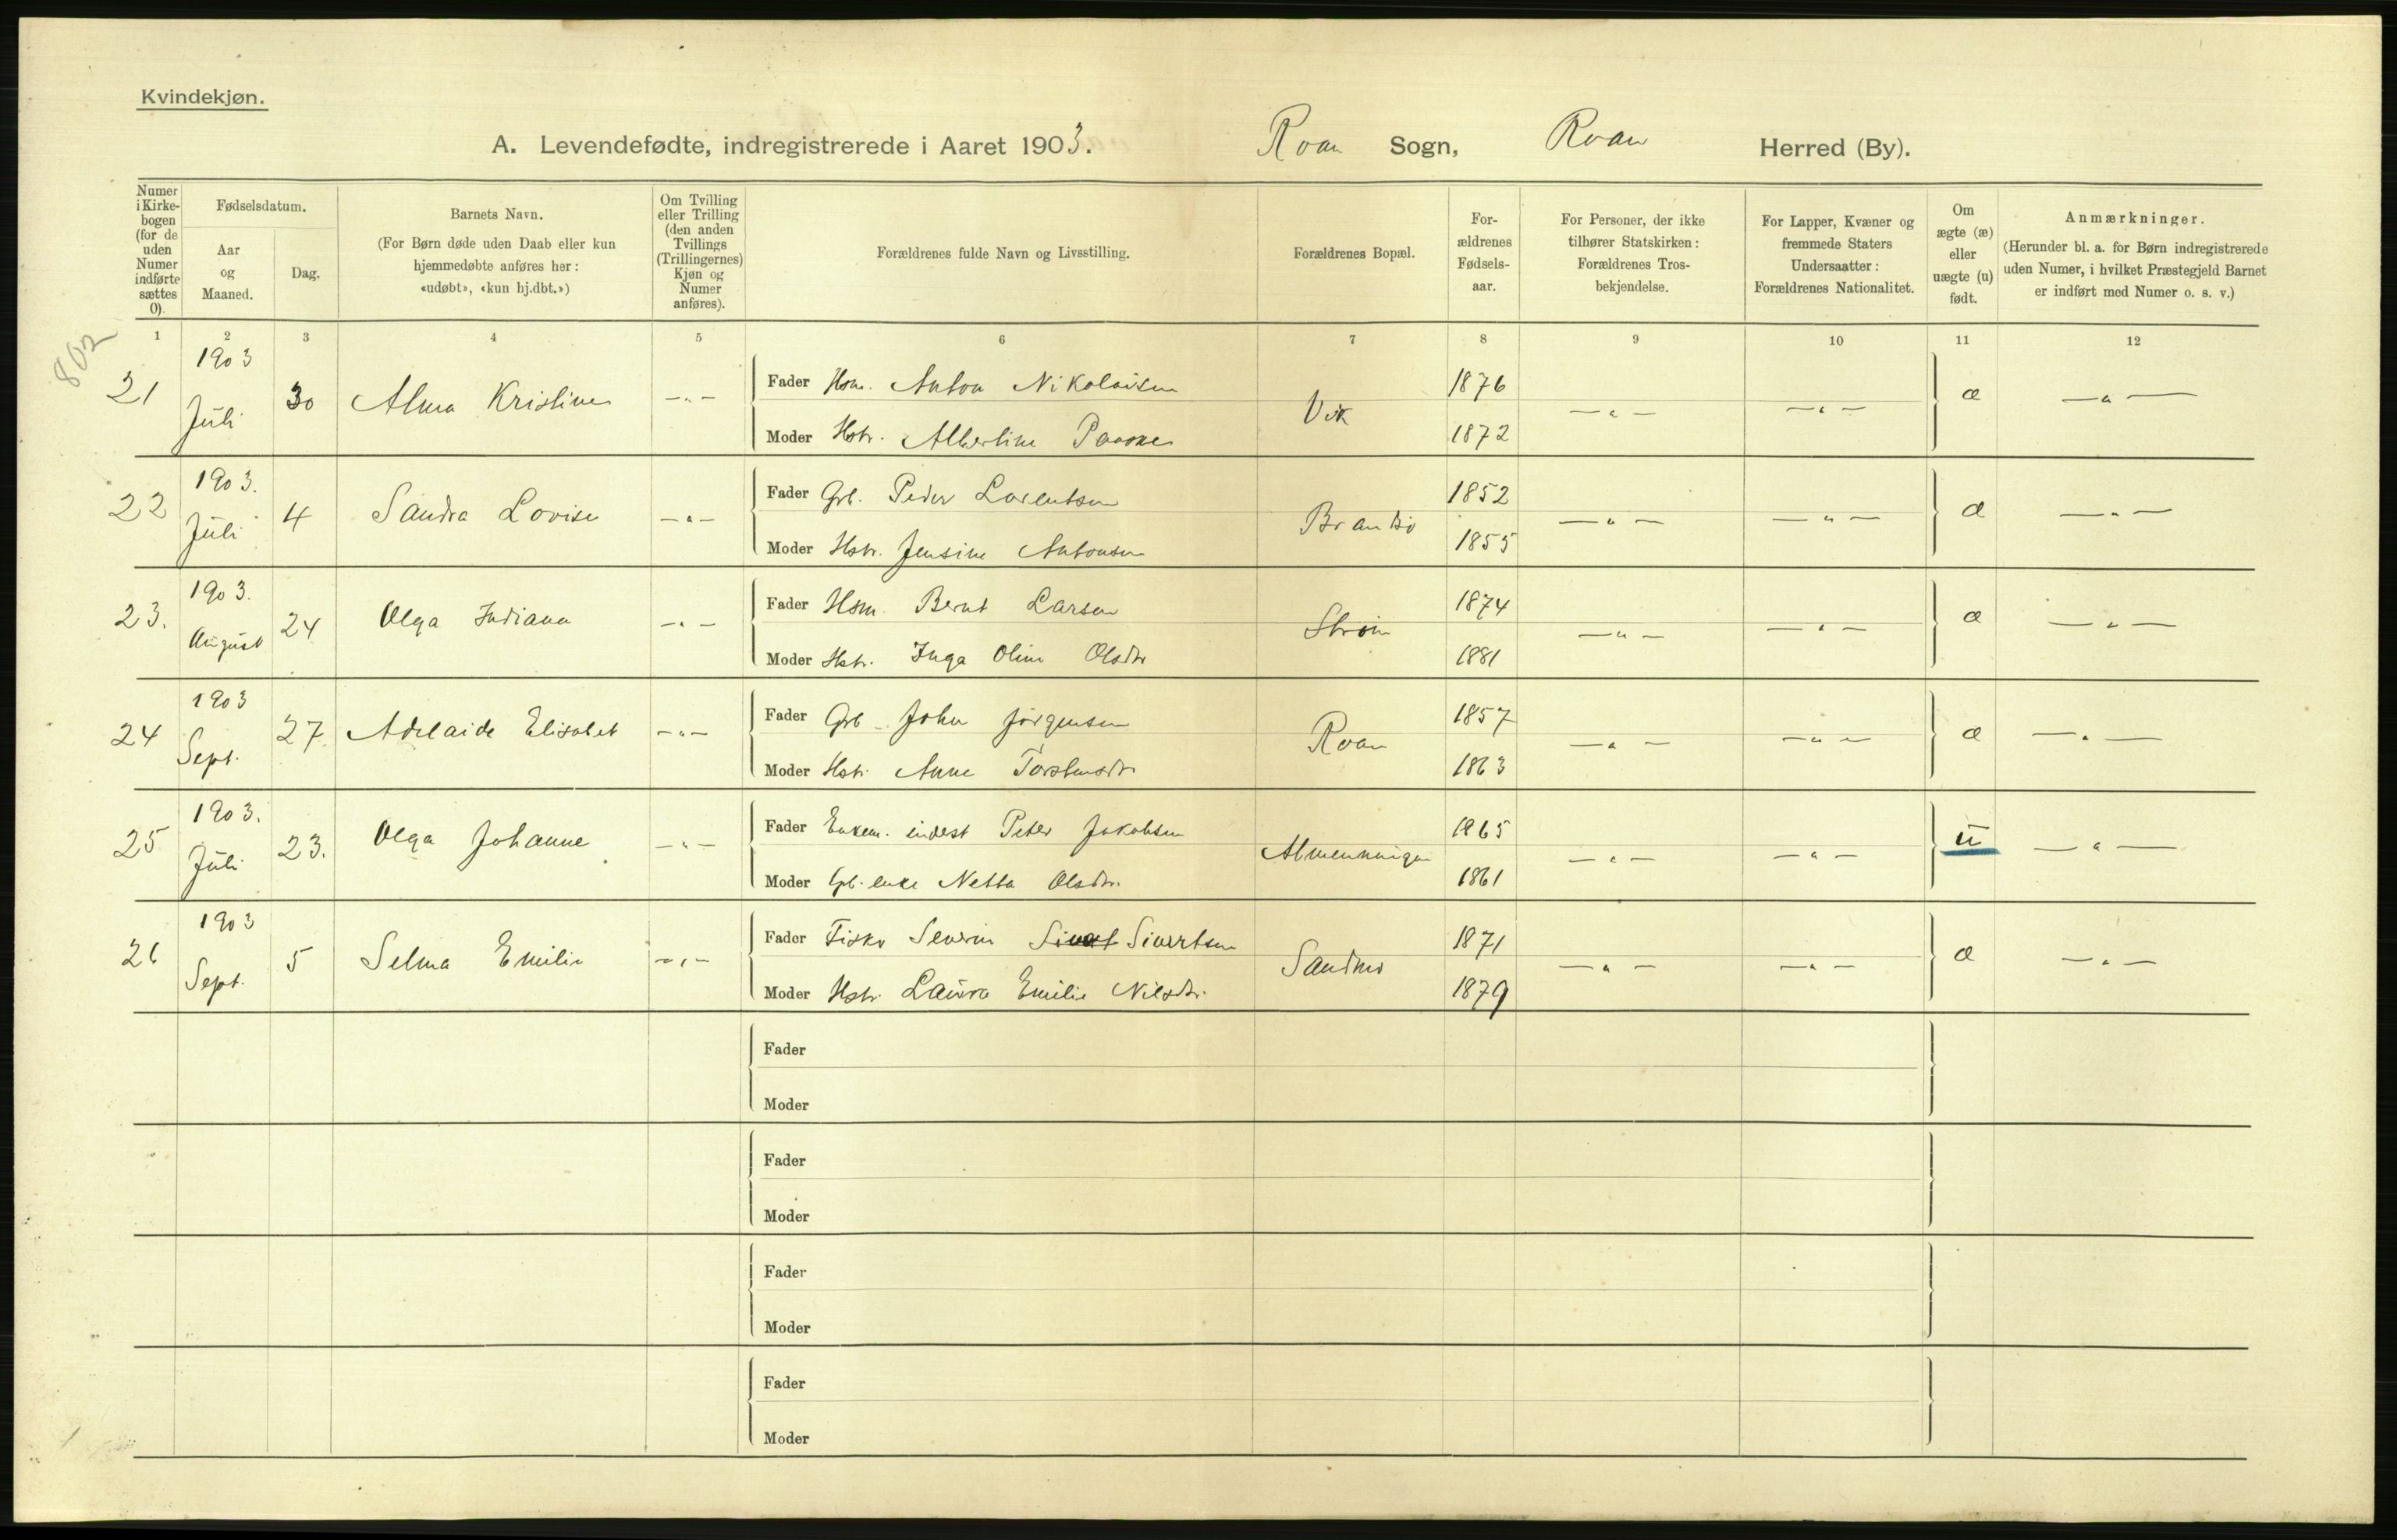 Kvindekjøn.
A. Levendefødte, indregistrerede i Aaret 1903. Roan Sogn, Roan Herred (By).
Numer i Kirkebogen (for de uden Numer indførte sættes 0).
Fødselsdatum.
Aar og Maaned.
Dag.
Barnets Navn.
(For Børn døde uden Daab eller kun hjemmedøbte anføres her: «udøbt», «kun hj.dbt.»)
Om Tvilling eller Trilling (den anden Tvillings (Trillingernes) Kjøn og Numer anføres).
Forældrenes fulde Navn og Livsstilling.
Forældrenes Bopæl.
For-ældrenes Fødsels-aar.
For Personer, der ikke tilhører Statskirken: Forældrenes Tros-bekjendelse.
For Lapper, Kvæner og fremmede Staters Undersaatter: Forældrenes Nationalitet.
Om ægte (æ) eller uægte (u) født.
Anmærkninger.
(Herunder bl. a. for Børn indregistrerede uden Numer, i hvilket Præstegjeld Barnet er indført med Numer o. s. v.)
1 2 3 4 5 6 7 8 9 10 11 12
802
21 1903 Juli 30 Alma Kristine -"- Fader Hsm. Anton Nikolaisen Vik 1876 -"- -"- æ -"-
Moder Hstr. Albertine Paaske 1872
22 1903. Juli 4 Sandra Lovise -"- Fader Grb. Peder Lorentsen Brandsö 1852 -"- -"- æ -"-
Moder Hstr. Jensine Antonsen 1855
23. 1903. August 24 Olga Indiana -"- Fader Hsm. Bernt Larsen Ström 1874 -"- -"- æ -"-
Moder Hstr. Inga Oline Olsdtr 1881
24 1903 Sept. 27 Adelaide Elisabet -"- Fader Grb John Jörgensen Roan 1857 -"- -"- æ -"-
Moder Hstr. Anne Torstensdtr 1863
25 1903. Juli 23. Olga Johanne -"- Fader Enkem. inderst Peter Jakobsen Almenningen 1865 -"- -"- u -"-
Moder Gb. enke Netta Olsdtr. 1861
26 1903 Sept. 5 Selma Emilie -"- Fader Fisker Severin Sivertsen Sandmo 1871 -"- -"- æ -"-
Moder Hstr. Laura Emilie Nilsdtr. 1879
Fader
Moder
Fader
Moder
Fader
Moder
Fader
Moder